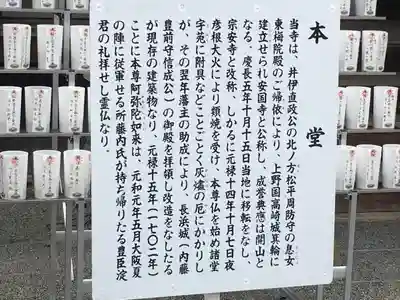 本堂
当寺は、井伊直政公の北ノ方松平周防守の息女
東梅院殿のご帰依により、上野国高崎城箕輪に
建立せられ安国寺と公称し、成誉典應は開山と
なる。慶長五年十月十五日当地に移転をなし、
宗安寺と改称、しかるに元禄十四年十月七日夜
彦根大火により類焼を受け、本尊仏を始め諸堂
宇苑に附具などことごとく灰燼の厄にかかりし
が、その翌年藩主の助成により、長浜城(内藤
豊前守信成公)の御殿を拝領し改造をなしたる
が現存の建築物なり、元禄十五年(一七〇二年)
ことに本尊阿弥陀如来は、元和元年五月大阪夏
の陣に従軍せる所藤内氏が持ち帰りたる豊臣淀
君の礼拝せし霊仏なり。